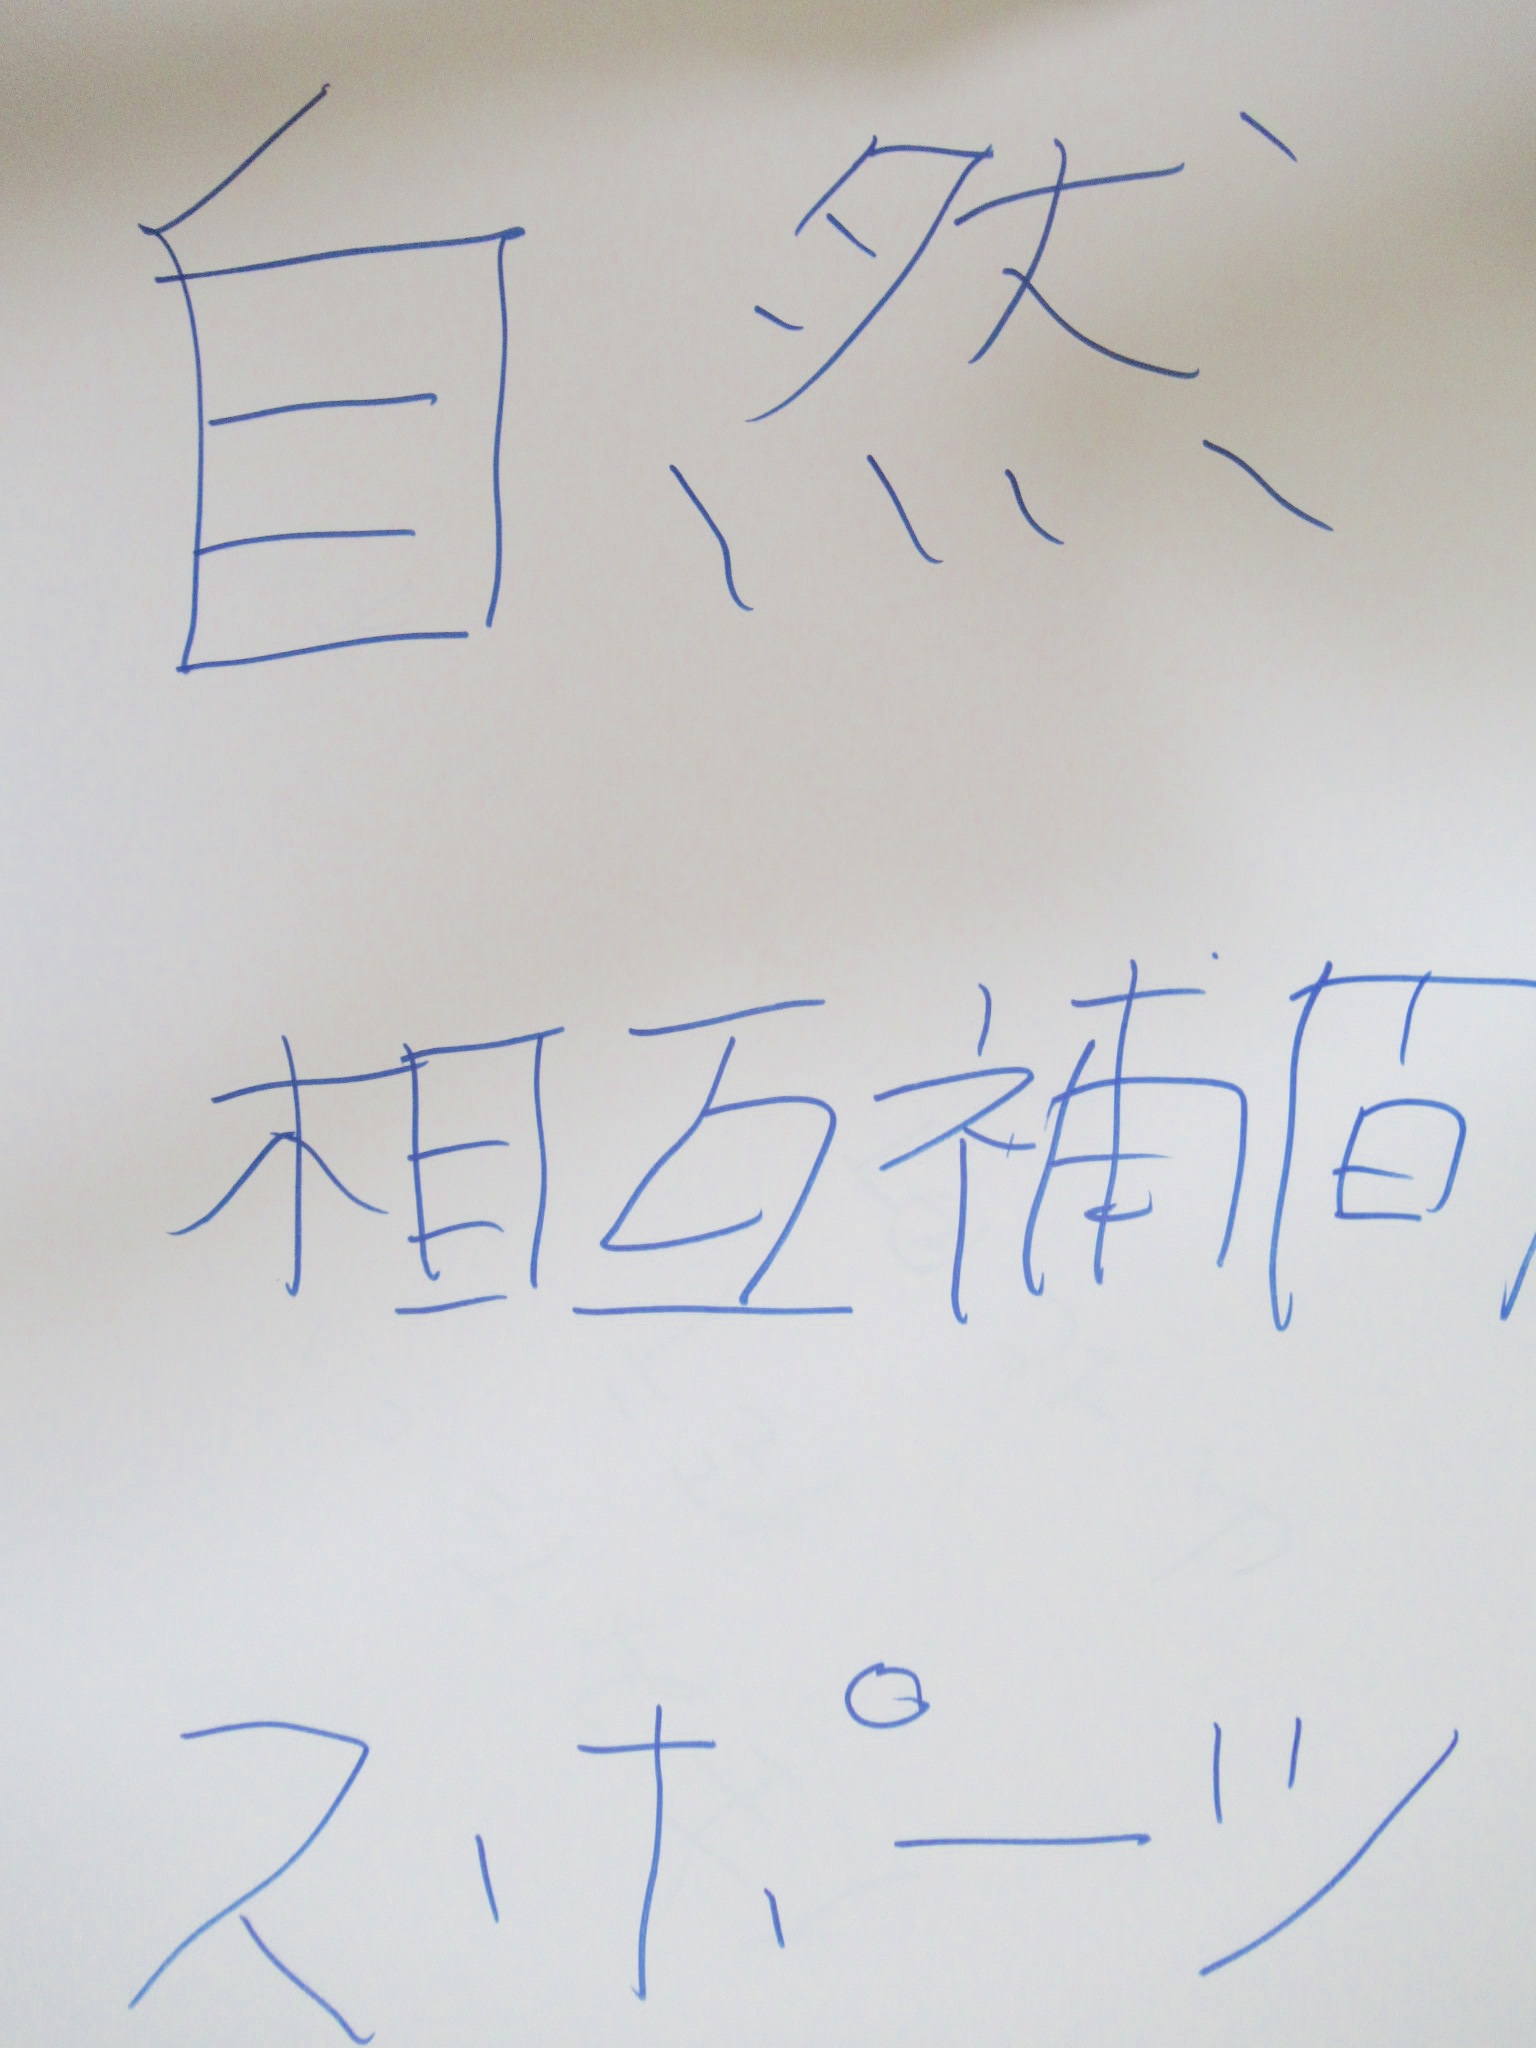 自然
相互補
スポーツ